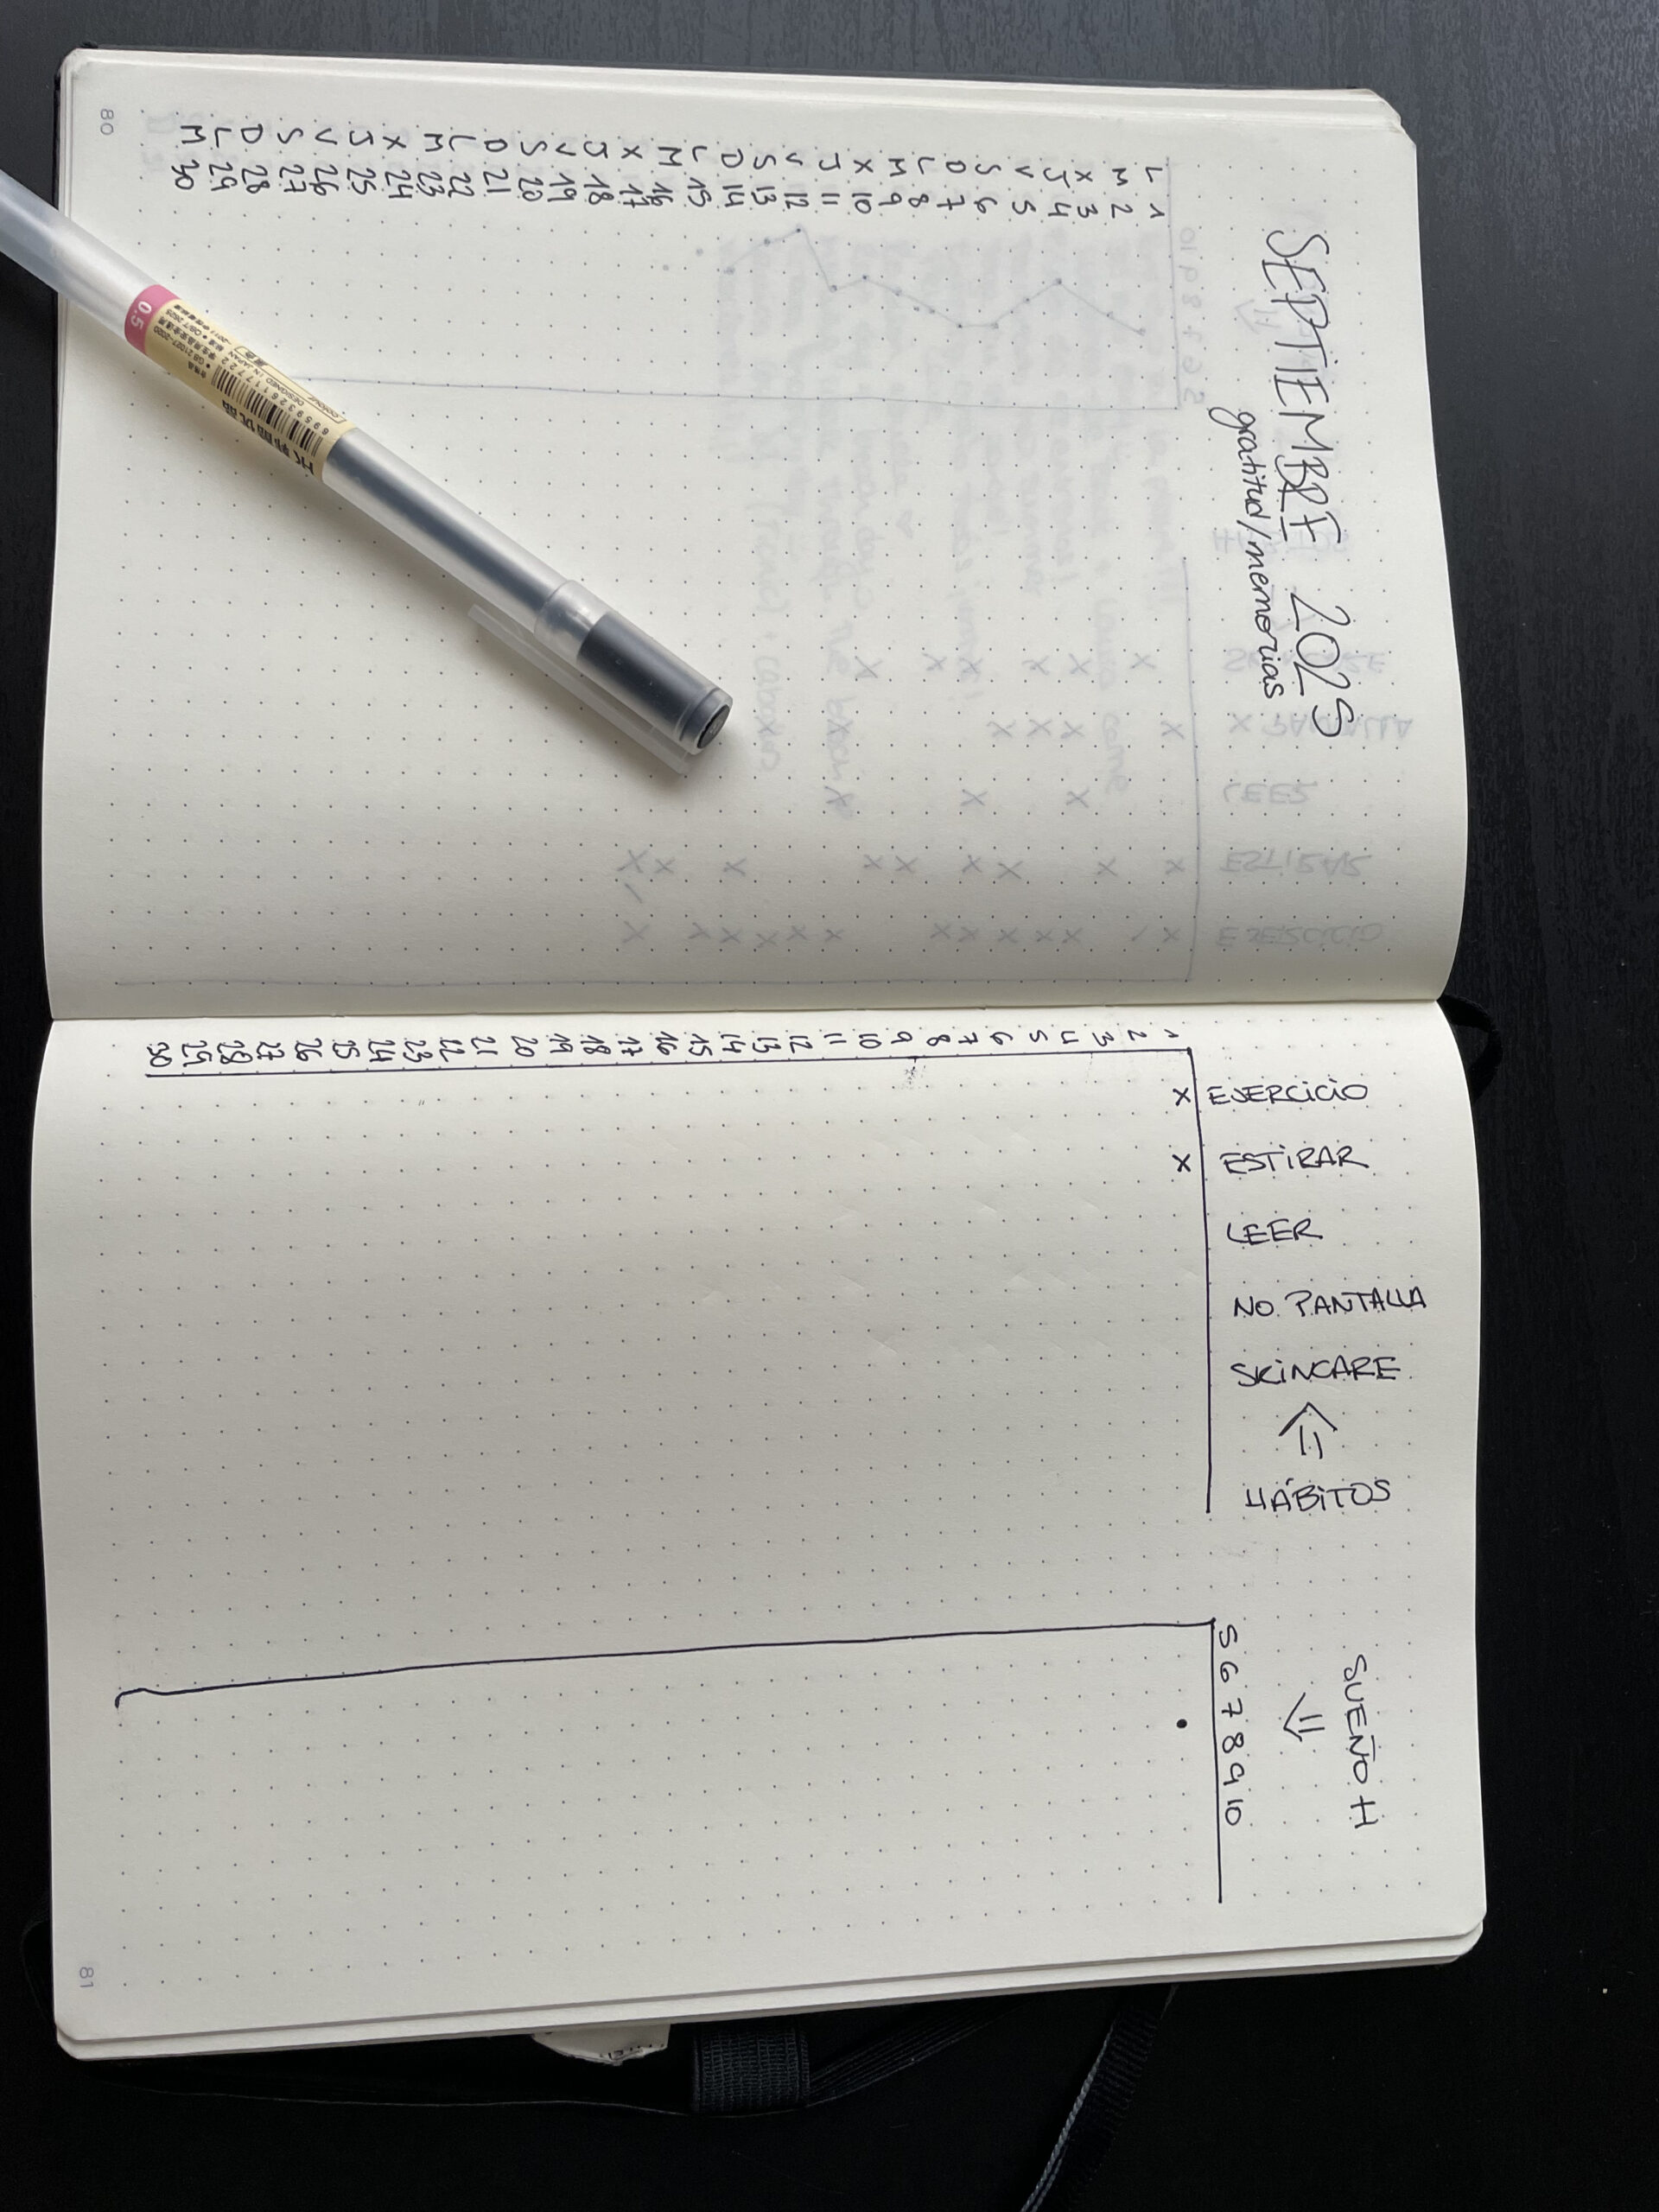 SEPTIEMBRE 2025
gratitud/memorias
L 1
M 2
X 3
J 4
V 5
S 6
D 7
L 8
M 9
X 10
J 11
V 12
S 13
D 14
L 15
M 16
X 17
J 18
V 19
S 20
D 21
L 22
M 23
X 24
J 25
V 26
S 27
D 28
L 29
M 30
80
EJERCICIO
ESTIRAR
LEER
NO PANTALLA
SKINCARE
HÁBITOS
SUEÑO H
5 6 7 8 9 10
1 X X
2
3
4
5
6
7
8
9
10
11
12
13
14
15
16
17
18
19
20
21
22
23
24
25
26
27
28
29
30
81
0.5
DESIGNED IN JAPAN